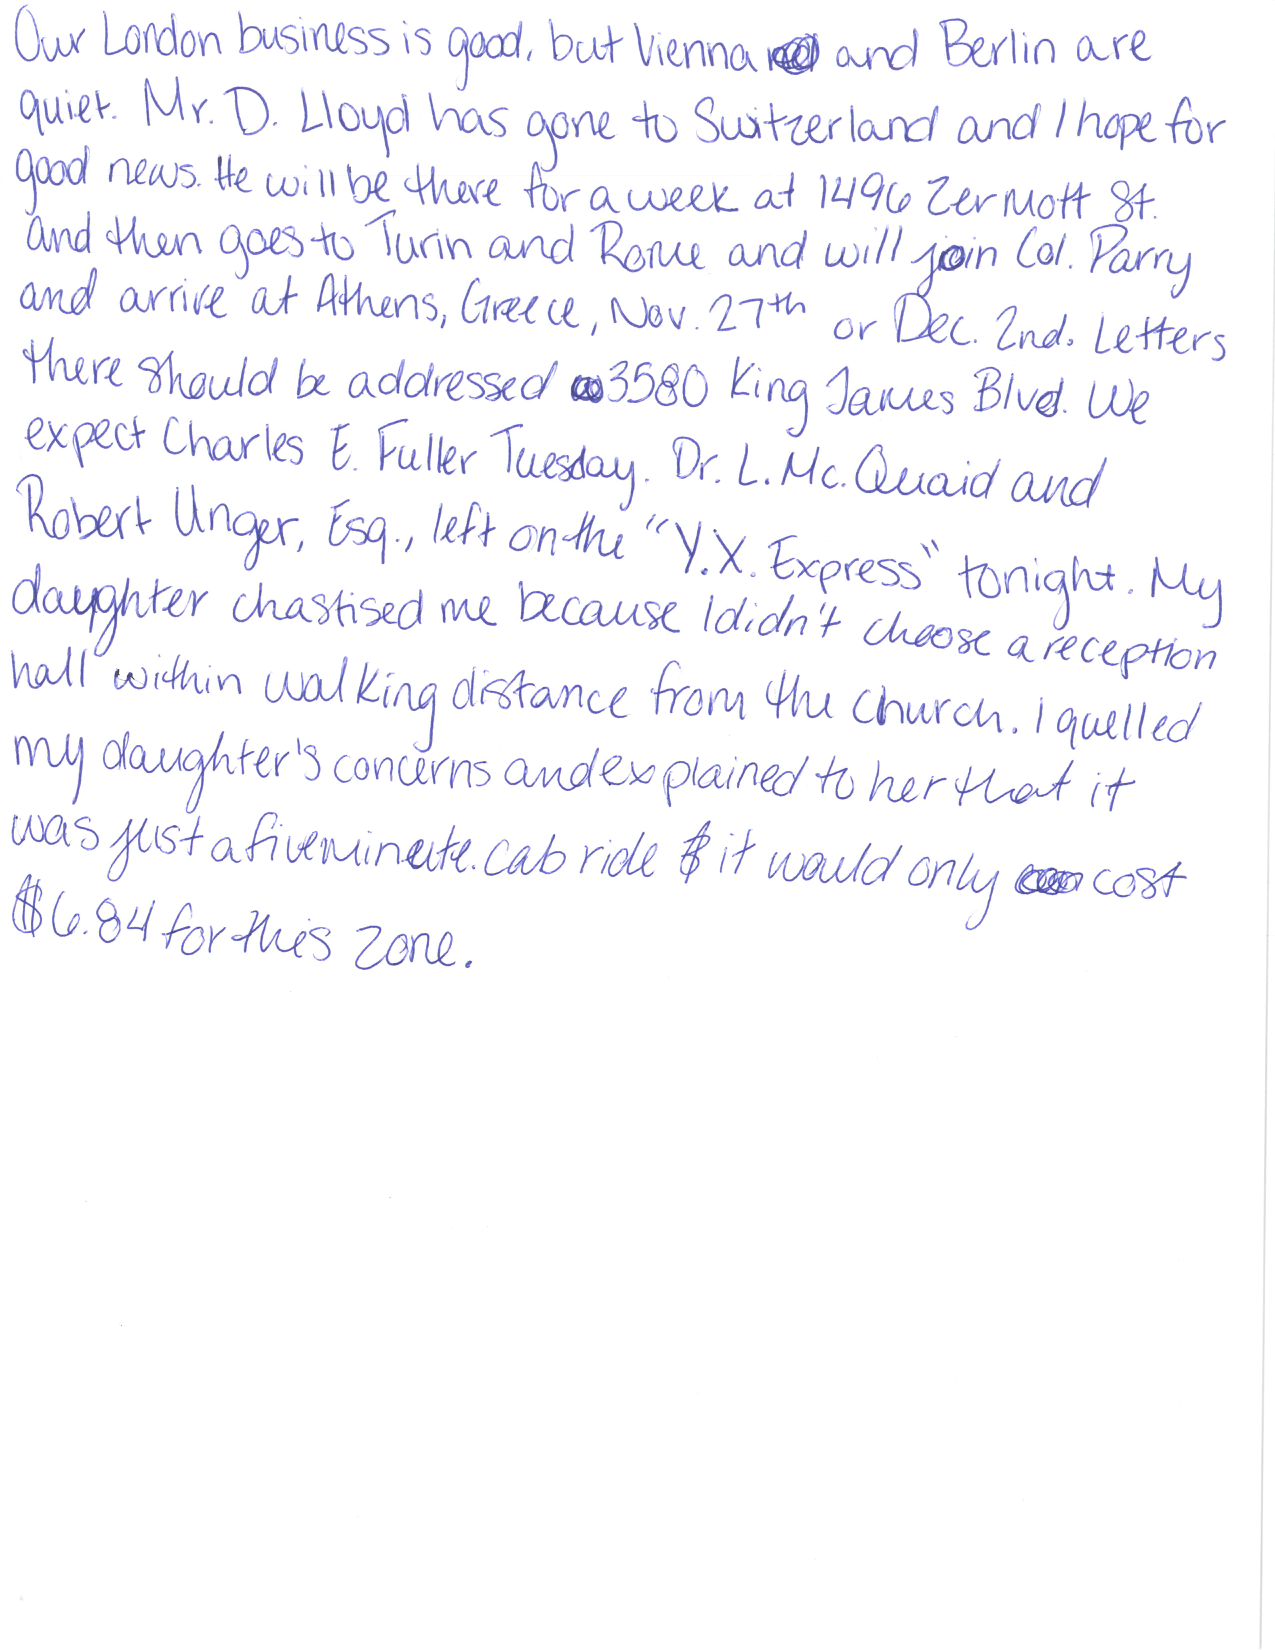 Our London business is good, but Vienna and Berlin are
quiet. Mr. D. Lloyd has gone to Switzerland and I hope for
good news. He will be there for a week at 1496 Zermott St.
and then goes to Turin and Rome and will join Col. Parry
and arrive at Athens, Greece, Nov. 27th or Dec. 2nd. Letters
there should be addressed 3580 King James Blvd. We
expect Charles E. Fuller Tuesday. Dr. L. Mc. Quaid and
Robert Unger, Esq., left on the "Y.X. Express" tonight. My
daughter chastised me because I didn't choose a reception
hall within walking distance from the church. I quelled
my daughter's concerns and explained to her that it
was just a five minute. cab ride & it would only cost
$6.84 for this zone.